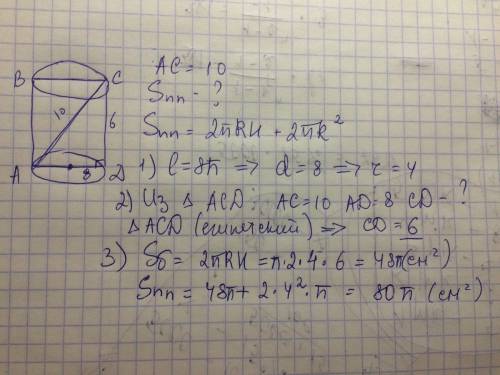 AC = 10
Sпп - ?
Sпп = 2πRH + 2πR²
B C
10 6
A 8 D
1) l = 8π => d = 8 => r = 4
2) Из △ ACD: AC = 10 AD = 8 CD - ?
△ ACD (египетский) => CD = 6
3) Sб = 2πRH = π · 2 · 4 · 6 = 48π (см²)
Sпп = 48π + 2 · 4² · π = 80π (см²)